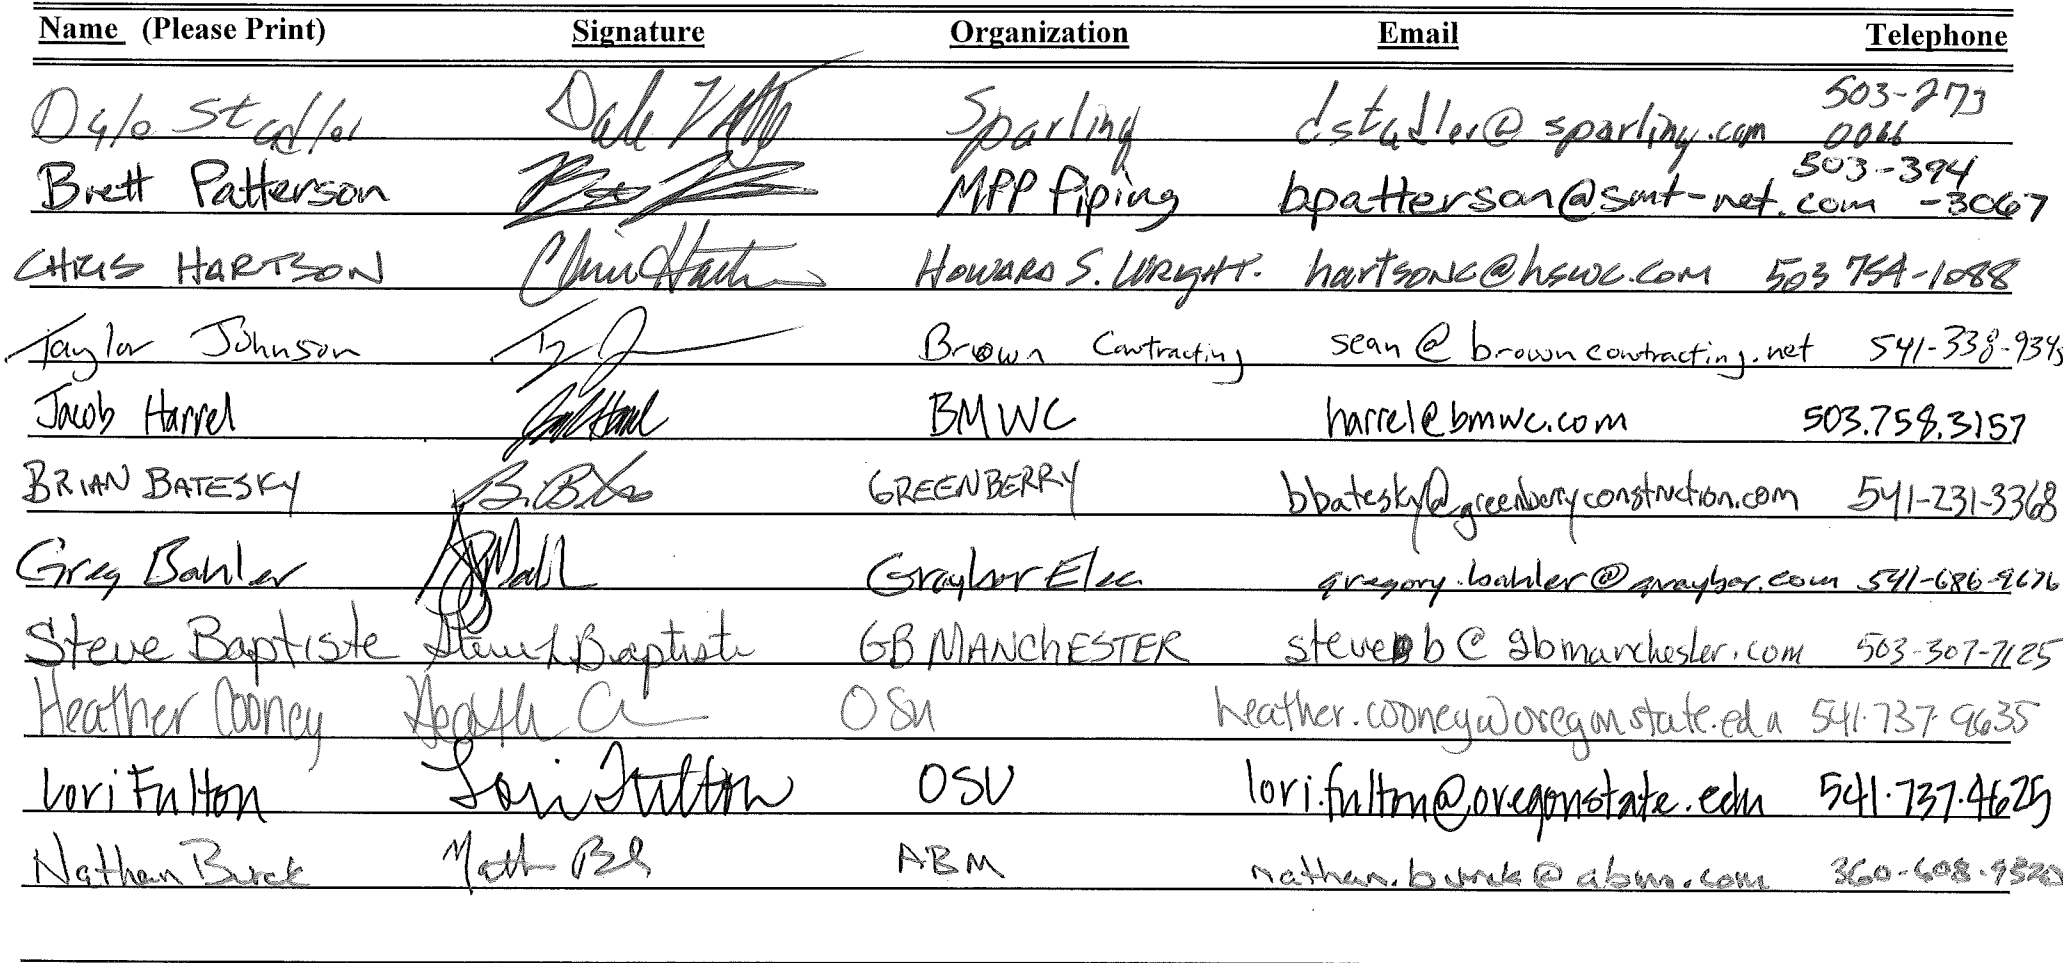 Name (Please Print) Signature Organization Email Telephone
Dale Stadler Dale Sparling dstadler@sparling.com 503-273
0066
Brett Patterson MPP Piping bpatterson@smt-net.com 503-394
-3067
CHRIS HARTSON Chris Hartson HOWARD S. WRIGHT. hartsonc@hswc.com 503 754-1088
Taylor Johnson Brown Contracting sean@browncontracting.net 541-338-9345
Jacob Harrel BMWC harrel@bmwc.com 503.758.3157
BRIAN BATESKY GREENBERRY bbatesky@greenberryconstruction.com 541-231-3368
Greg Bahler Graybar Elec gregory.bahler@graybar.com 541-686-9676
Steve Baptiste Steve L Baptiste GB MANCHESTER steveb@gbmanchester.com 503-307-7125
Heather Cooney OSU heather.cooney@oregonstate.edu 541.737.9635
Lori Fulton Lori Fulton OSU lori.fulton@oregonstate.edu 541.737.4625
Nathan Burck ABM nathan.burck@abm.com 360-608-9520